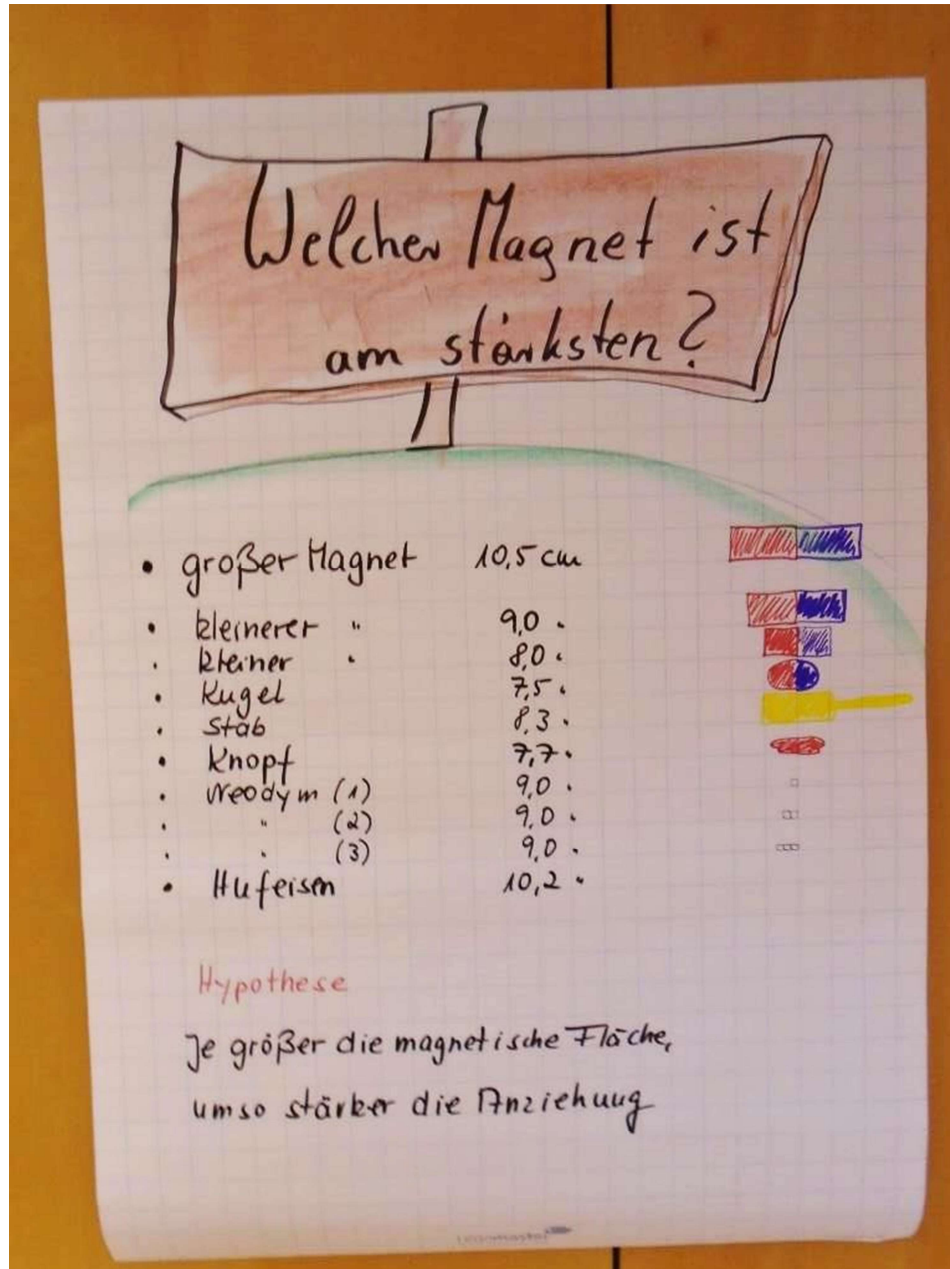 Welcher Magnet ist
am stärksten?
• großer Magnet 10,5 cm
• kleinerer " 9,0 "
• kleiner " 8,0 "
• Kugel 7,5 "
• Stab 8,3 "
• Knopf 7,7 "
• Neodym (1) 9,0 "
• " (2) 9,0 "
• " (3) 9,0 "
• Hufeisen 10,2 "
Hypothese
Je größer die magnetische Fläche,
umso stärker die Anziehung